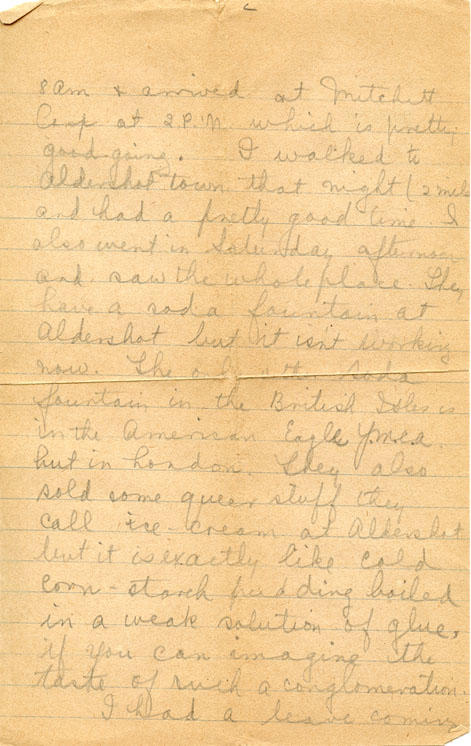 8 am & arrived at Mitchett
Camp at 2 P.M. which is pretty
good going. I walked to
Aldershot town that night (2 miles
and had a pretty good time I
also went in Saturday afternoon
and saw the whole place. They
have a soda fountain at
Aldershot but it isn't working
now. The only other soda
fountain in the British Isles is
in the American Eagle Y.M.C.A.
hut in London. They also
sold some queer stuff they
call ice-cream at Aldershot
but it is exactly like cold
corn-starch pudding boiled
in a weak solution of glue,
if you can imagine the
taste of such a conglomeration.
I had a leave coming